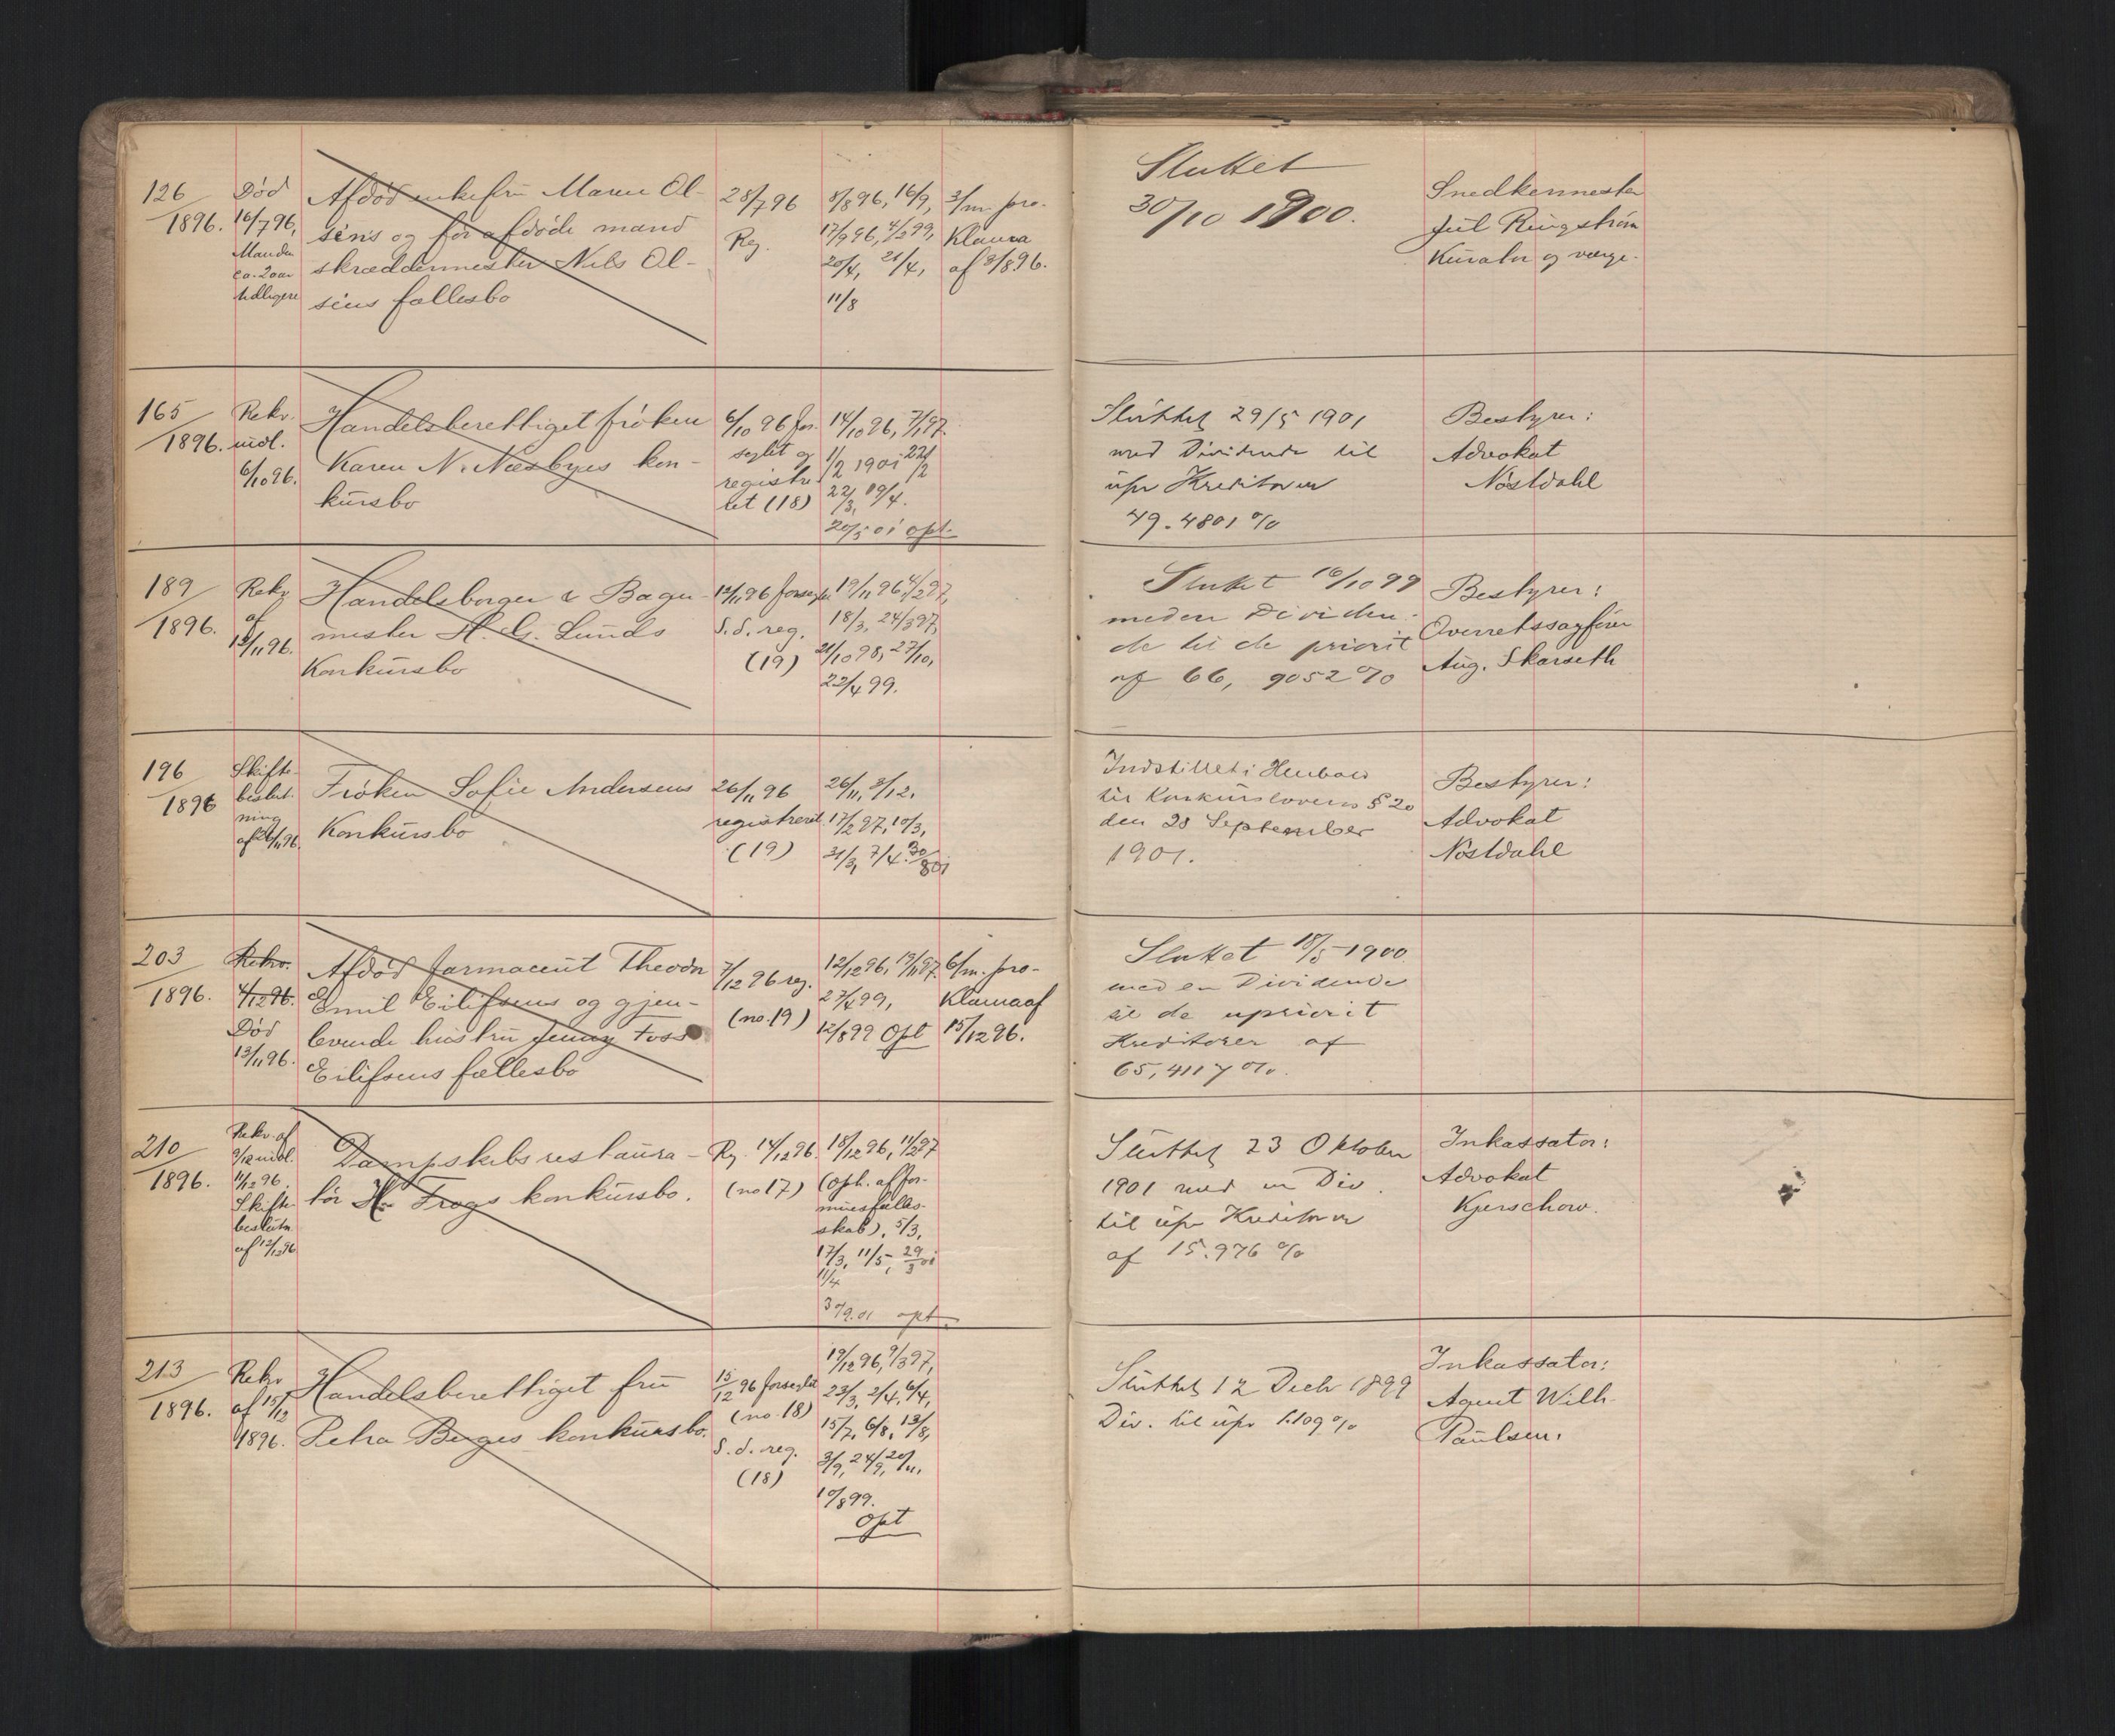 126
1896.
Død
16/7 96,
Manden
ca. 2 aar
tidligere
Afdød enkefru Maren Ol-
sens og før afdøde mand
skræddermester Nils Ol-
sens fællesbo
28/7 96
Reg.
8/8 96, 16/9,
17/9 96, 4/2 99,
20/4, 21/4,
11/8
3/m. pro-
klama
af 8/8 96.
Sluttet
30/10 1900.
Snedkermester
Jul Ringstrøm
Kurator og værge.
165
1896.
Rekv.
mdl.
6/10 96.
Handelsberettiget frøken
Karen N. Næsbyes kon-
kursbo
6/10 96 for-
seglet og
registre-
tet (18)
14/10 96, 7/1 97.
1/2 1901 22/2
22/3, 19/4.
20/5 01 opt.
Sluttet 29/5 1901
med Dividende til
upr Kreditorer
49.4801 %
Bestyrer:
Advokat
Nøstdahl
189
1896.
Rekv
af
12/11 96.
Handelsborger & Bager-
mester H. G. Lunds
Konkursbo
12/11 96 forseglet
S. d. reg.
(19)
19/11 96, 4/2 97,
18/3, 24/3 97,
21/10 98, 27/10,
22/4 99.
Sluttet 16/10 99
meden Dividen-
de til de priorit
af 66, 9052 %
Bestyrer:
Overretssagfører
Aug. Skarseth
196
1896
Skifte-
beslut-
ning
af 26/11 96.
Frøken Sofie Andersens
Konkursbo
26/11 96
registreret
(19)
26/11, 3/12,
17/2 97, 10/3,
31/3, 7/4. 30/8 01
Indstillet i Henhold
til Konkurslovens § 20
den 28 September
1901.
Bestyrer:
Advokat
Nøstdahl
203
1896.
Rekv.
4/12 96.
Død
13/11 96.
Afdød farmaceut Theodor
Emil Eilifsens og gjen-
levende hustru Jenny Foss
Eilifsens fællesbo
7/12 96 reg.
(no. 19)
12/12 96, 19/11 97.
27/4 99,
12/8 99 Opt
6/m. pro-
klama af
15/12 96.
Sluttet 18/5 1900
med en Dividende
til de upriorit
Kreditorer af
65,4117 %.
210
1896.
Rekv. af
9/12 mdl.
11/12 96.
Skifte-
beslutn.
af 12/12 96
Dampskibsrestaura-
tør H. Frogs konkursbo.
Reg. 14/12 96.
(no 17)
18/12 96, 11/2 97
(oph. af for-
muesfælles-
skab), 5/3,
17/3, 11/5, 29/3 01
11/4
30/9.01 opt.
Sluttet 23 Oktober
1901 med en Div.
til upr Kreditorer
af 15.976 %
Inkassator:
Advokat
Kjerschow.
213
1896.
Rekv
af 15/12
1896.
Handelsberettiget fru
Petra Berges konkursbo.
15/12 96 forseglet
(no. 18)
S. d. reg.
(18)
19/12 96, 9/3 97,
23/3, 2/4, 6/4,
15/7, 6/8, 13/8,
3/9, 24/9, 20/11,
10/8 99.
Opt
Sluttet 12 Decbr 1899
Div. til upr 1.109 %
Inkassator:
Agent Wilh.
Paulsen.